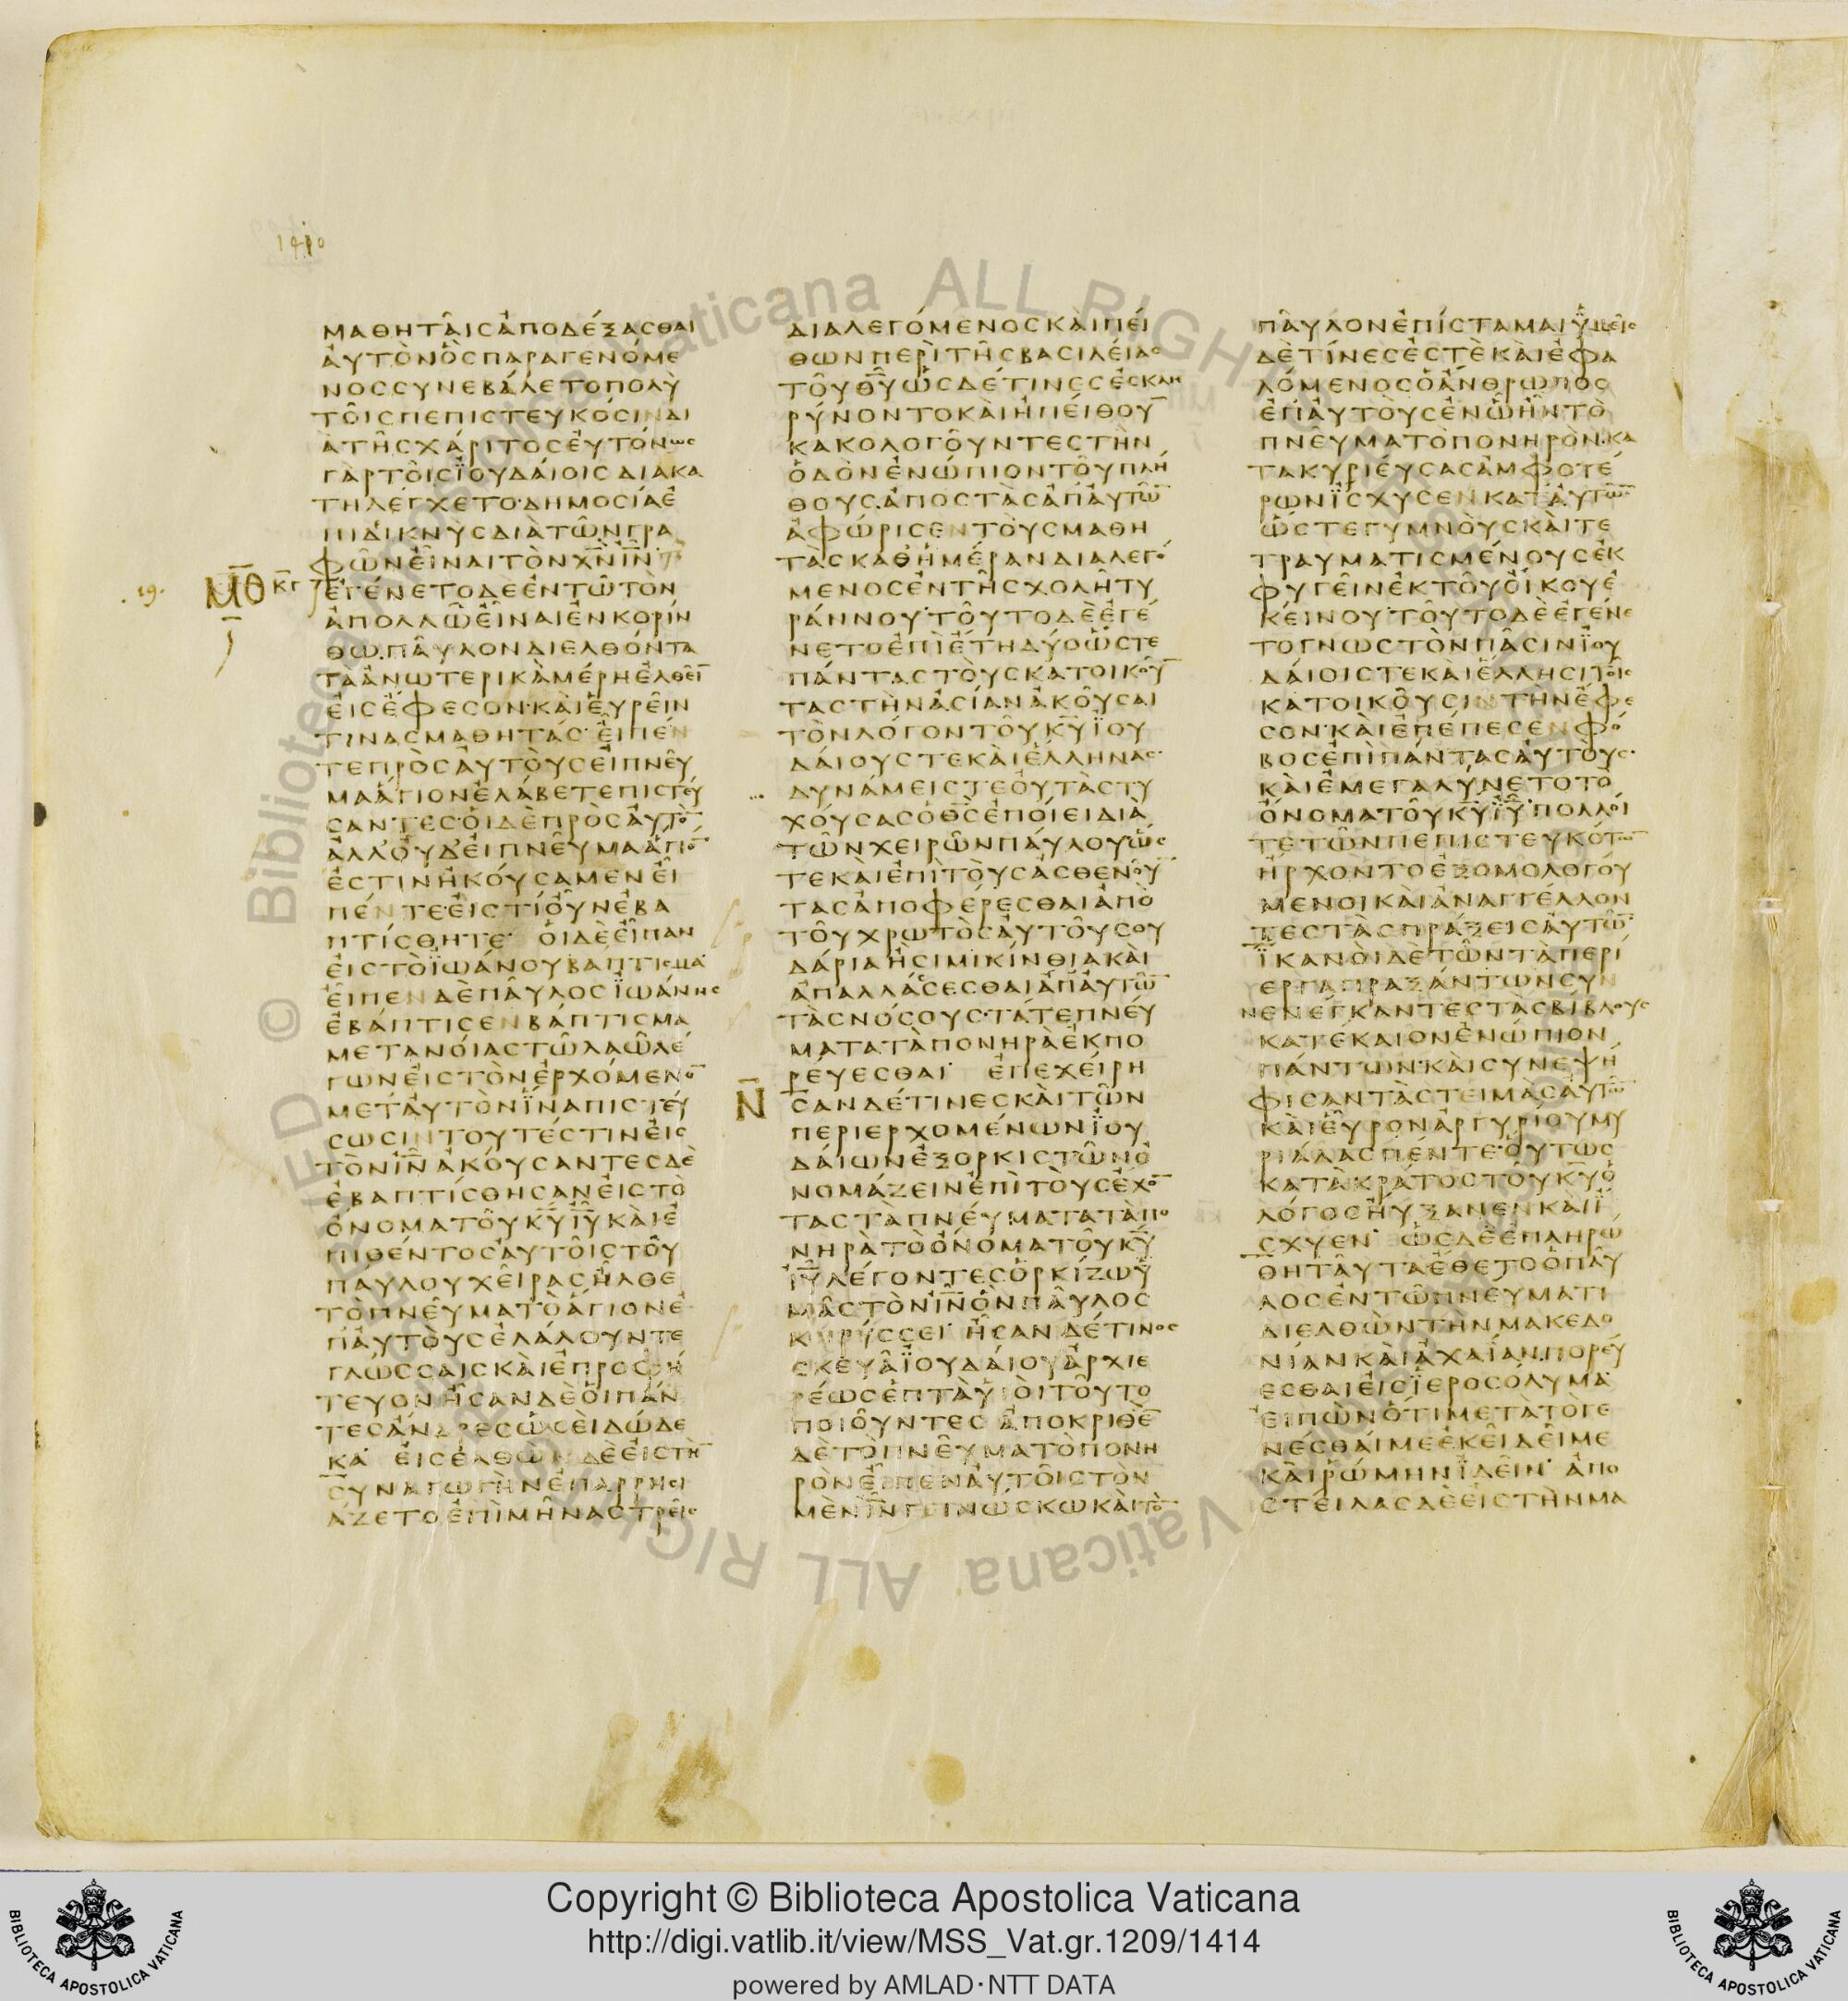 1410
ΜΑΘΗΤΑΙΣΑΠΟΔΕΞΑΣΘΑΙ
ΑΥΤΟΝΟΣΠΑΡΑΓΕΝΟΜΕ
ΝΟΣΣΥΝΕΒΑΛΕΤΟΠΟΛΥ
ΤΟΙΣΠΕΠΙΣΤΕΥΚΟΣΙΝΔΙ
ΑΤΗΣΧΑΡΙΤΟΣΕΥΤΟΝΩΣ
ΓΑΡΤΟΙΣΪΟΥΔΑΙΟΙΣΔΙΑΚΑ
ΤΗΛΕΓΧΕΤΟ·ΔΗΜΟΣΙΑΕ
ΠΙΔΙΚΝΥΣΔΙΑΤΩΝΓΡΑ
ΦΩΝΕΙΝΑΙΤΟΝΧ̅Ν̅Ι̅Ν̅
19. Μ̅Θ̅ Κ̅Γ̅ ΕΓΕΝΕΤΟΔΕΕΝΤΩΤΟΝ
ΑΠΟΛΛΩΕΙΝΑΙΕΝΚΟΡΙΝ
ΘΩ.ΠΑΥΛΟΝΔΙΕΛΘΟΝΤΑ
ΤΑΑΝΩΤΕΡΙΚΑΜΕΡΗΕΛΘΕΙ̅
ΕΙΣΕΦΕΣΟΝ·ΚΑΙΕΥΡΕΙΝ
ΤΙΝΑΣΜΑΘΗΤΑΣ·ΕΙΠΕΝ
ΤΕΠΡΟΣΑΥΤΟΥΣΕΙΠΝΕΥ
ΜΑΑΓΙΟΝΕΛΑΒΕΤΕΠΙΣΤΕΥ
ΣΑΝΤΕΣ·ΟΙΔΕΠΡΟΣΑΥΤΟ̅
ΑΛΛΟΥΔΕΙΠΝΕΥΜΑΑΓΙΟ̅
ΕΣΤΙΝΗΚΟΥΣΑΜΕΝΕΙ
ΠΕΝΤΕ·ΕΙΣΤΙΟΥΝΕΒΑ
ΠΤΙΣΘΗΤΕ· ΟΙΔΕΕΙΠΑΝ
ΕΙΣΤΟΪΩΑΝΟΥΒΑΠΤΙΣΜΑ·
ΕΙΠΕΝΔΕΠΑΥΛΟΣΪΩΑΝΗΣ
ΕΒΑΠΤΙΣΕΝΒΑΠΤΙΣΜΑ
ΜΕΤΑΝΟΙΑΣΤΩΛΑΩΛΕ
ΓΩΝΕΙΣΤΟΝΕΡΧΟΜΕΝΟ̅
ΜΕΤΑΥΤΟΝΪΝΑΠΙΣΤΕΥ
ΣΩΣΙΝΤΟΥΤΕΣΤΙΝΕΙΣ
ΤΟΝΙ̅Ν̅ΑΚΟΥΣΑΝΤΕΣΔΕ
ΕΒΑΠΤΙΣΘΗΣΑΝΕΙΣΤΟ
ΟΝΟΜΑΤΟΥΚ̅Υ̅Ι̅Υ̅ΚΑΙΕ
ΠΙΘΕΝΤΟΣΑΥΤΟΙΣΤΟΥ
ΠΑΥΛΟΥΧΕΙΡΑΣΗΛΘΕ
ΤΟΠΝΕΥΜΑΤΟΑΓΙΟΝΕ
ΠΑΥΤΟΥΣΕΛΑΛΟΥΝΤΕ
ΓΛΩΣΣΑΙΣΚΑΙΕΠΡΟΦΗ
ΤΕΥΟΝΗΣΑΝΔΕΟΙΠΑΝ
ΤΕΣΑΝΔΡΕΣΩΣΕΙΔΩΔΕ
ΚΑ· ΕΙΣΕΛΘΩΝΔΕΕΙΣΤΗ̅
ΣΥΝΑΓΩΓΗΝΕΠΑΡΡΗΣΙ
ΑΖΕΤΟΕΠΙΜΗΝΑΣΤΡΕΙΣ
ΔΙΑΛΕΓΟΜΕΝΟΣΚΑΙΠΕΙ
ΘΩΝΠΕΡΙΤΗΣΒΑΣΙΛΕΙΑΣ
ΤΟΥΘ̅Υ̅ΩΣΔΕΤΙΝΕΣΕΣΚΛΗ
ΡΥΝΟΝΤΟΚΑΙΗΠΕΙΘΟΥ̅
ΚΑΚΟΛΟΓΟΥΝΤΕΣΤΗΝ
ΟΔΟΝΕΝΩΠΙΟΝΤΟΥΠΛΗ
ΘΟΥΣ.ΑΠΟΣΤΑΣΑΠΑΥΤΩ̅
ΑΦΩΡΙΣΕΝΤΟΥΣΜΑΘΗ
ΤΑΣΚΑΘΗΜΕΡΑΝΔΙΑΛΕΓΟ
ΜΕΝΟΣΕΝΤΗΣΧΟΛΗΤΥ
ΡΑΝΝΟΥ·ΤΟΥΤΟΔΕΕΓΕ
ΝΕΤΟΕΠΙΕΤΗΔΥΟΩΣΤΕ
ΠΑΝΤΑΣΤΟΥΣΚΑΤΟΙΚΟΥ̅
ΤΑΣΤΗΝΑΣΙΑΝΑΚΟΥΣΑΙ
ΤΟΝΛΟΓΟΝΤΟΥΚ̅Υ̅ΪΟΥ
ΔΑΙΟΥΣΤΕΚΑΙΕΛΛΗΝΑΣ·
ΔΥΝΑΜΕΙΣΤΕΟΥΤΑΣΤΥ
ΧΟΥΣΑΣΟΘ̅Σ̅ΕΠΟΙΕΙΔΙΑ
ΤΩΝΧΕΙΡΩΝΠΑΥΛΟΥΩΣ
ΤΕΚΑΙΕΠΙΤΟΥΣΑΣΘΕΝΟΥ̅
ΤΑΣΑΠΟΦΕΡΕΣΘΑΙΑΠΟ
ΤΟΥΧΡΩΤΟΣΑΥΤΟΥΣΟΥ
ΔΑΡΙΑΗΣΙΜΙΚΙΝΘΙΑΚΑΙ
ΑΠΑΛΛΑΣΕΣΘΑΙΑΠΑΥΤΩ̅
ΤΑΣΝΟΣΟΥΣ·ΤΑΤΕΠΝΕΥ
ΜΑΤΑΤΑΠΟΝΗΡΑΕΚΠΟ
ΡΕΥΕΣΘΑΙ· ΕΠΕΧΕΙΡΗ
Ν̅ ΣΑΝΔΕΤΙΝΕΣΚΑΙΤΩΝ
ΠΕΡΙΕΡΧΟΜΕΝΩΝΪΟΥ
ΔΑΙΩΝΕΞΟΡΚΙΣΤΩΝΟ
ΝΟΜΑΖΕΙΝΕΠΙΤΟΥΣΕΧΟ̅
ΤΑΣΤΑΠΝΕΥΜΑΤΑΤΑΠΟ
ΝΗΡΑΤΟΟΝΟΜΑΤΟΥΚ̅Υ̅
Ι̅Υ̅ΛΕΓΟΝΤΕΣΟΡΚΙΖΩΫ
ΜΑΣΤΟΝΙ̅Ν̅ΟΝΠΑΥΛΟΣ
ΚΗΡΥΣΣΕΙ· ΗΣΑΝΔΕΤΙΝΟΣ
ΣΚΕΥΑΪΟΥΔΑΙΟΥΑΡΧΙΕ
ΡΕΩΣΕΠΤΑΥΙΟΙΤΟΥΤΟ
ΠΟΙΟΥΝΤΕΣ ΑΠΟΚΡΙΘΕ̅
ΔΕΤΟΠΝΕΥΜΑΤΟΠΟΝΗ
ΡΟΝΕΙΠΕΝΑΥΤΟΙΣΤΟΝ
ΜΕΝΙ̅Ν̅ΓΕΙΝΩΣΚΩΚΑΙΤΟ̅
ΠΑΥΛΟΝΕΠΙΣΤΑΜΑΙΫΜΕΙΣ
ΔΕΤΙΝΕΣΕΣΤΕΚΑΙΕΦΑ
ΛΟΜΕΝΟΣΟΑΝΘΡΩΠΟΣ
ΕΠΑΥΤΟΥΣΕΝΩΗΝΤΟ
ΠΝΕΥΜΑΤΟΠΟΝΗΡΟΝ·ΚΑ
ΤΑΚΥΡΙΕΥΣΑΣΑΜΦΟΤΕ
ΡΩΝΪΣΧΥΣΕΝΚΑΤΑΥΤΩ̅
ΩΣΤΕΓΥΜΝΟΥΣΚΑΙΤΕ
ΤΡΑΥΜΑΤΙΣΜΕΝΟΥΣΕΚ
ΦΥΓΕΙΝΕΚΤΟΥΟΙΚΟΥΕ
ΚΕΙΝΟΥ·ΤΟΥΤΟΔΕΕΓΕΝΕ
ΤΟΓΝΩΣΤΟΝΠΑΣΙΝΪΟΥ
ΔΑΙΟΙΣΤΕΚΑΙΕΛΛΗΣΙΤΟΙΣ
ΚΑΤΟΙΚΟΥΣΙΝΤΗΝΕΦΕ
ΣΟΝ·ΚΑΙΕΠΕΠΕΣΕΝΦΟ
ΒΟΣΕΠΙΠΑΝΤΑΣΑΥΤΟΥΣ·
ΚΑΙΕΜΕΓΑΛΥΝΕΤΟΤΟ
ΟΝΟΜΑΤΟΥΚ̅Υ̅Ι̅Υ̅·ΠΟΛΛΟΙ
ΤΕΤΩΝΠΕΠΙΣΤΕΥΚΟΤΩ̅
ΗΡΧΟΝΤΟΕΞΟΜΟΛΟΓΟΥ
ΜΕΝΟΙΚΑΙΑΝΑΓΓΕΛΛΟΝ
ΤΕΣΤΑΣΠΡΑΞΕΙΣΑΥΤΩ̅·
ΪΚΑΝΟΙΔΕΤΩΝΤΑΠΕΡΙ
ΕΡΓΑΠΡΑΞΑΝΤΩΝΣΥΝ
ΝΕΝΕΓΚΑΝΤΕΣΤΑΣΒΙΒΛΟΥΣ
ΚΑΤΕΚΑΙΟΝΕΝΩΠΙΟΝ
ΠΑΝΤΩΝ·ΚΑΙΣΥΝΕΨΗ
ΦΙΣΑΝΤΑΣΤΕΙΜΑΣΑΥΤΩ̅
ΚΑΙΕΥΡΟΝΑΡΓΥΡΙΟΥΜΥ
ΡΙΑΔΑΣΠΕΝΤΕ·ΟΥΤΩΣ
ΚΑΤΑΚΡΑΤΟΣΤΟΥΚ̅Υ̅Ο
ΛΟΓΟΣΗΥΞΑΝΕΝΚΑΙΪ
ΣΧΥΕΝ· ΩΣΔΕΕΠΛΗΡΩ
ΘΗΤΑΥΤΑΕΘΕΤΟΟΠΑΥ
ΛΟΣΕΝΤΩΠΝΕΥΜΑΤΙ
ΔΙΕΛΘΩΝΤΗΝΜΑΚΕΔΟ
ΝΙΑΝΚΑΙΑΧΑΪΑΝ.ΠΟΡΕΥ
ΕΣΘΑΙΕΙΣΪΕΡΟΣΟΛΥΜΑ·
ΕΙΠΩΝΟΤΙΜΕΤΑΤΟΓΕ
ΝΕΣΘΑΙΜΕΕΚΕΙΔΕΙΜΕ
ΚΑΙΡΩΜΗΝΪΔΕΙΝ· ΑΠΟ
ΣΤΕΙΛΑΣΔΕΕΙΣΤΗΝΜΑ
© Biblioteca Vaticana ALL RIGH
Vaticana ALL RIGH
BIBLIOTECA APOSTOLICA VATICANA
Copyright © Biblioteca Apostolica Vaticana
http://digi.vatlib.it/view/MSS_Vat.gr.1209/1414
powered by AMLAD·NTT DATA
BIBLIOTECA APOSTOLICA VATICANA